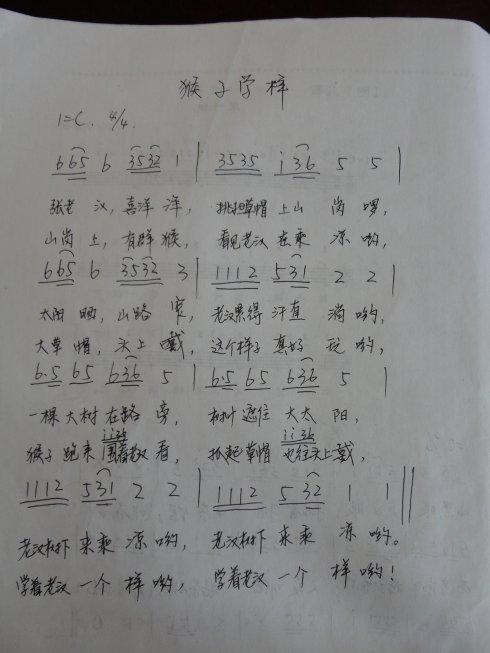 猴子学样
1=C. 4/4.
6 65 6 3532 1 | 3535 i 36 5 5 |
张老汉,喜洋洋, 挑担草帽上山岗啰,
山岗上,有群猴, 看见老汉在乘凉哟,
6 65 6 3532 3 | 1112 531 2 2 |
太阳晒,山路宽, 老汉累得汗直淌哟,
大草帽,头上戴, 这个样子真好玩哟,
6.5 65 636 5 | 6.5 65 636 5 |
一棵大树在路旁, 树叶遮住大太阳,
猴子跑来围着老汉看, 抓起草帽也往头上戴,
1112 531 2 2 | 1112 5 32 1 1 ||
老汉树下来乘凉哟, 老汉树下来乘凉哟。
学着老汉一个样哟, 学着老汉一个样哟!